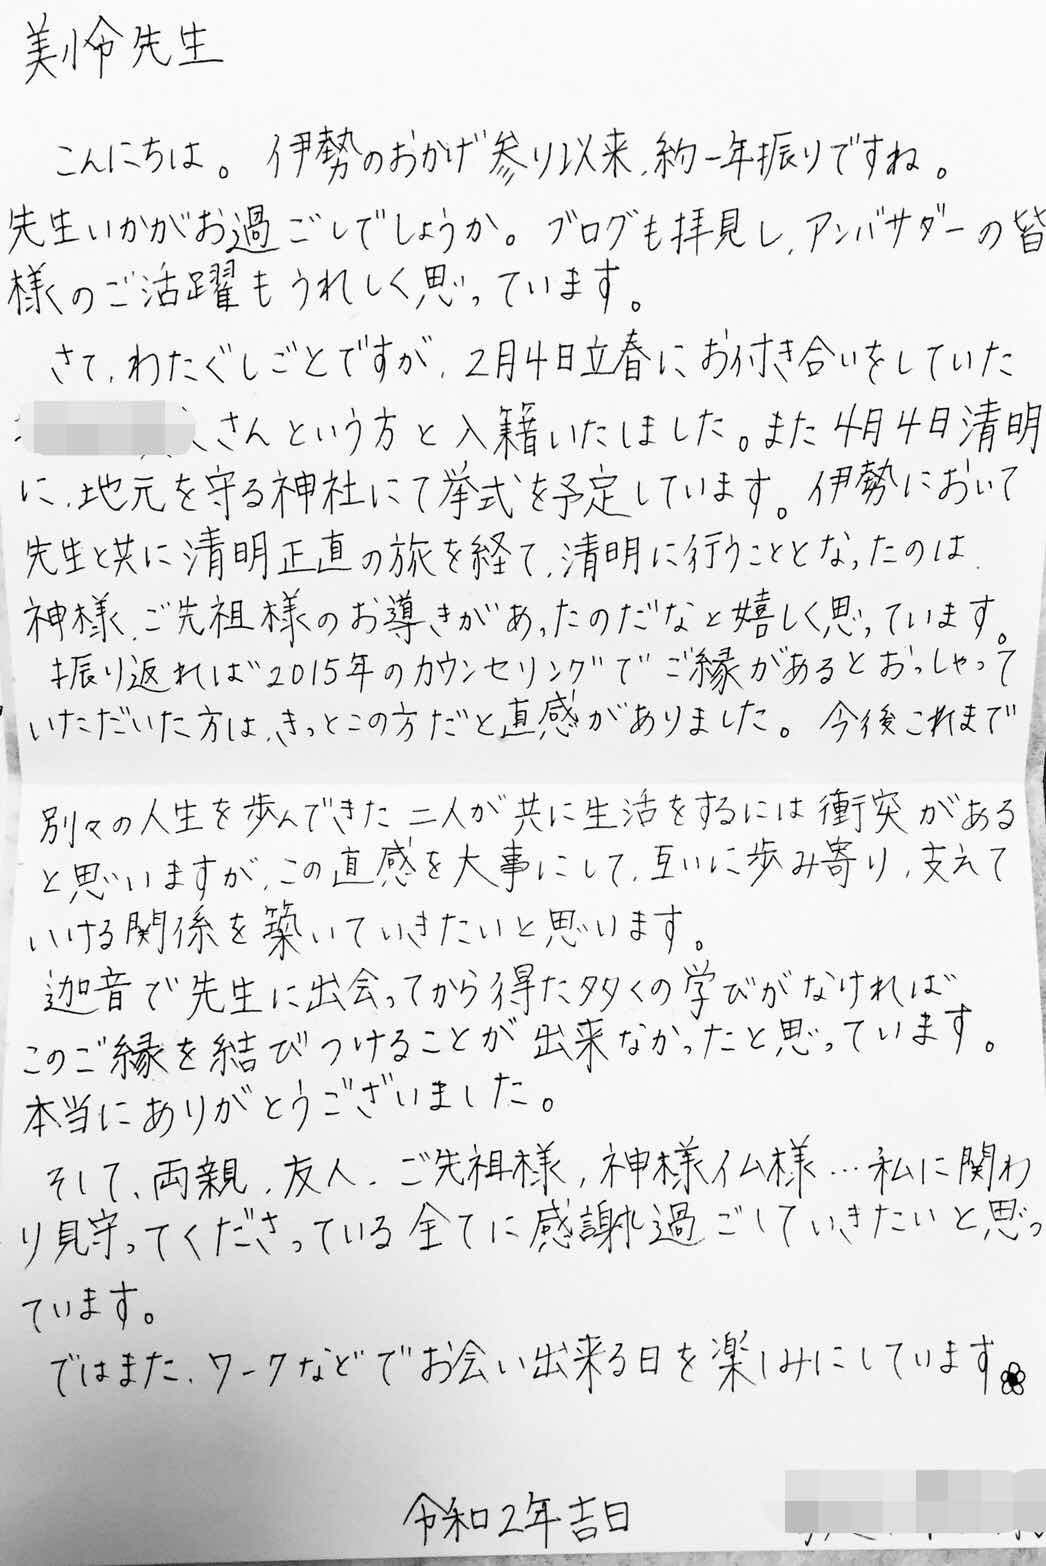 美怜先生
こんにちは。伊勢のおかげ参り以来、約一年振りですね。
先生いかがお過ごしでしょうか。ブログも拝見し、アンバサダーの皆
様のご活躍もうれしく思っています。
さて、わたくしごとですが、2月4日立春にお付き合いをしていた
さんという方と入籍いたしました。また4月4日清明
に、地元を守る神社にて挙式を予定しています。伊勢において
先生と共に清明正直の旅を経て、清明に行うこととなったのは、
神様、ご先祖様のお導きがあったのだなと嬉しく思っています。
振り返れば2015年のカウンセリングでご縁があるとおっしゃって
いただいた方は、きっとこの方だと直感がありました。今後これまで
別々の人生を歩んできた二人が共に生活をするには衝突がある
と思いますが、この直感を大事にして、互いに歩み寄り、支えて
いける関係を築いていきたいと思います。
迦音で先生に出会ってから得た多くの学びがなければ
このご縁を結びつけることが出来なかったと思っています。
本当にありがとうございました。
そして、両親、友人、ご先祖様、神様仏様…私に関わ
り見守ってくださっている全てに感謝し過ごしていきたいと思っ
ています。
ではまた、ワークなどでお会い出来る日を楽しみにしています
令和2年吉日